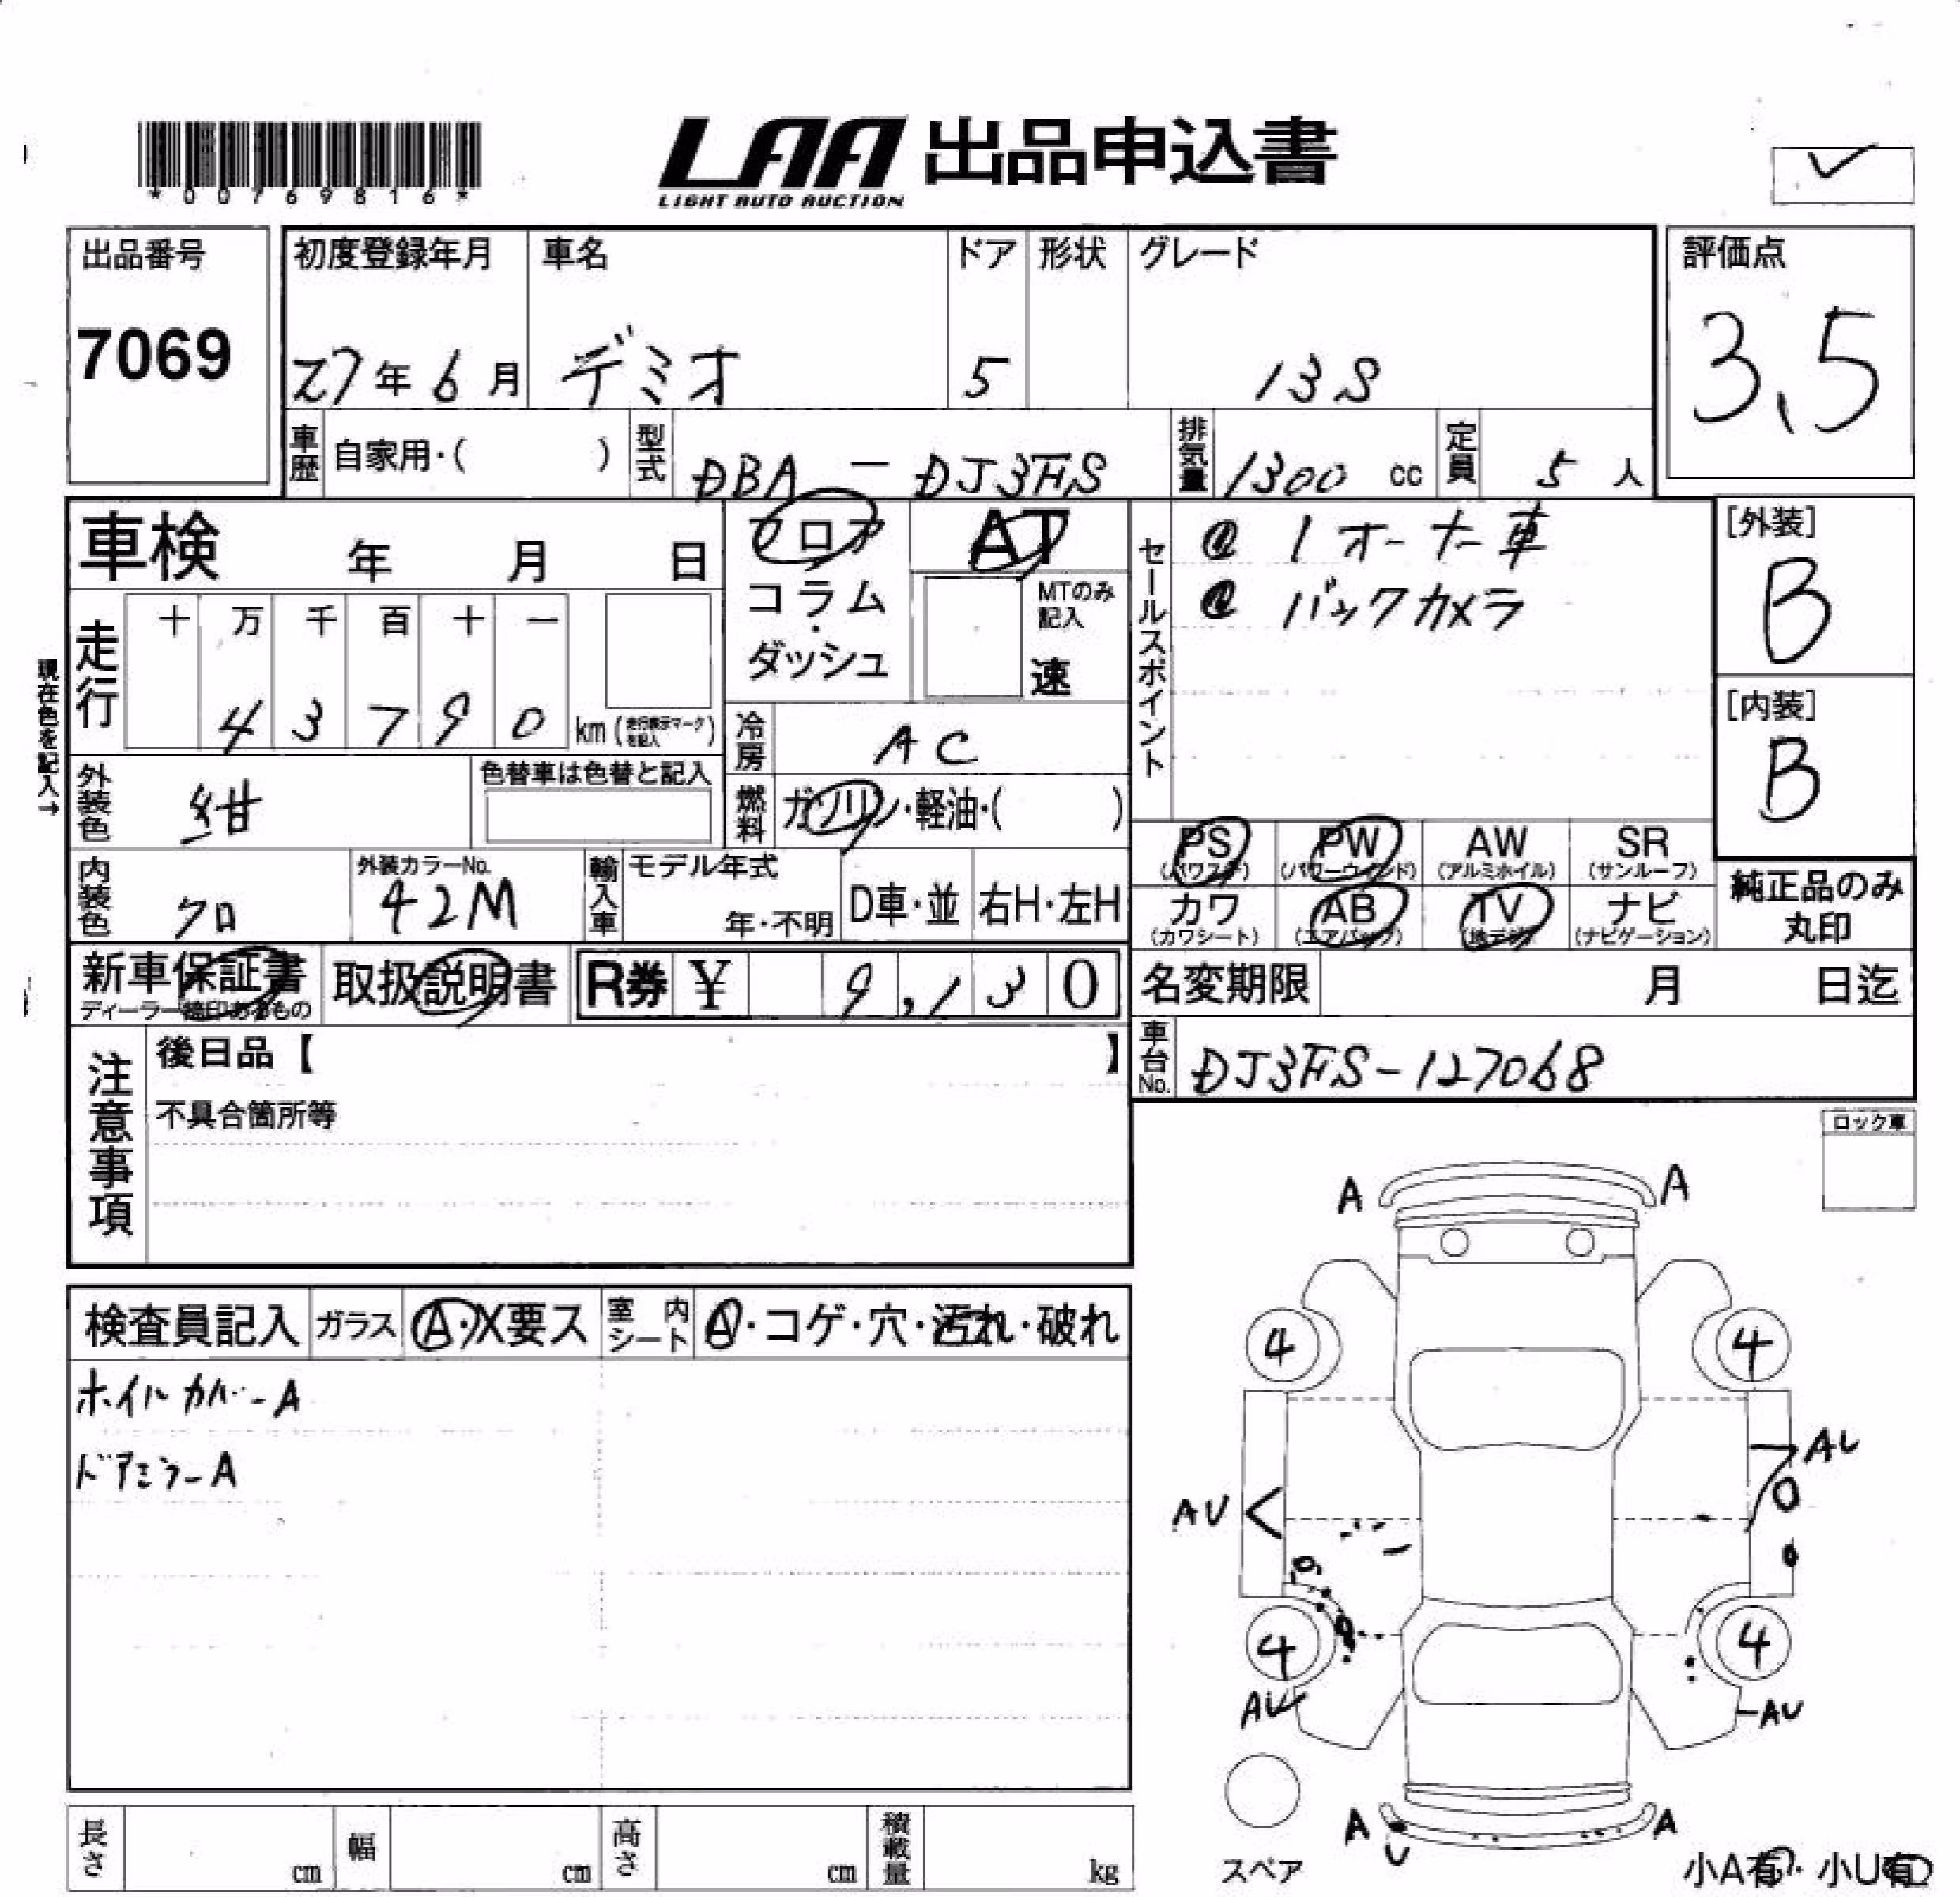 *0076981​6*
LAA 出品申込書
LIGHT AUTO AUCTION
出品番号
7069
初度登録年月
27年6月
車名
デミオ
ドア
5
形状
グレード
13S
評価点
3.5
車歴
自家用・( )
型式
DBA-DJ3FS
排気量
1300 cc
定員
5 人
車検 年 月 日
フロア
コラム
・
ダッシュ
AT
MTのみ
記入
速
セールスポイント
@ 1オーナー車
@ バックカメラ
[外装]
B
[内装]
B
現在色を記入→
走行
十 万 千 百 十 一
4 3 7 9 0 km (走行表示マークを記入)
冷房
AC
外装色
紺
色替車は色替と記入
燃料
ガソリン・軽油・( )
PS
(パワステ)
PW
(パワーウインド)
AW
(アルミホイル)
SR
(サンルーフ)
カワ
(カワシート)
AB
(エアバック)
TV
(地デジ)
ナビ
(ナビゲーション)
純正品のみ
丸印
内装色
クロ
外装カラーNo.
42M
輸入車
モデル年式
年・不明
D車・並
右H・左H
新車保証書
取扱説明書
R券 ¥ 9,130
名変期限 月 日迄
車台No.
DJ3FS-127068
注意事項
後日品【 】
不具合箇所等
ロック車
検査員記入
ガラス
A・X要ス
室内
シート
A・コゲ・穴・汚れ・破れ
ホイルカバーA
ドアミラーA
A A
4 4
AU
AU
4 4
AU
AU
A
U
A
スペア
小A有・小U有
長さ cm
幅 cm
高さ cm
積載量 kg